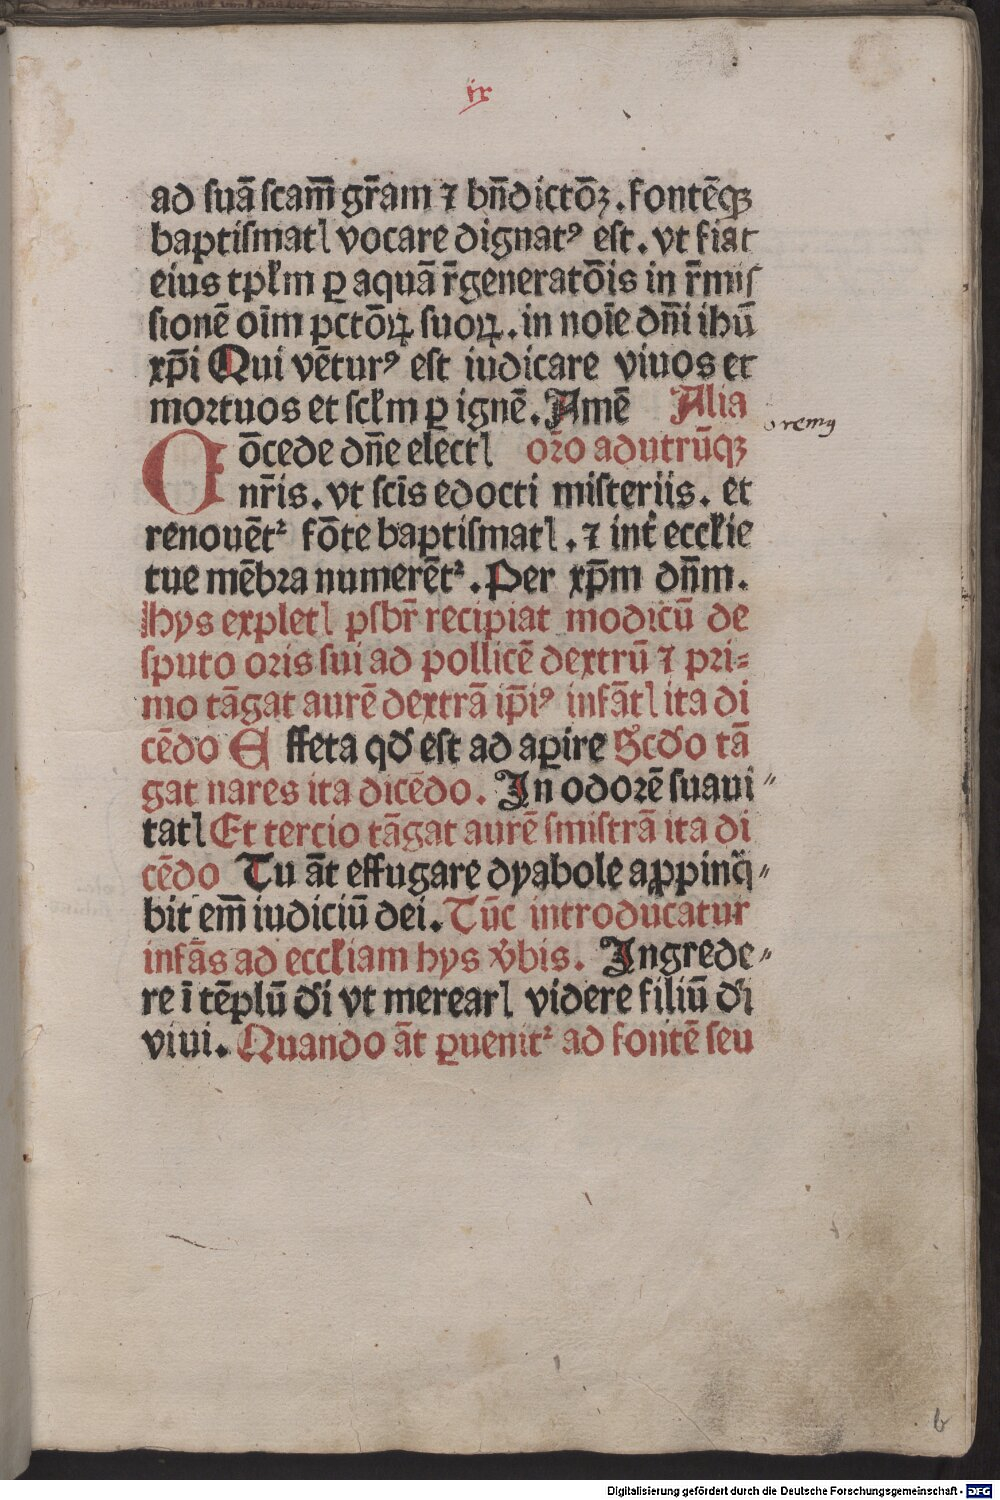 ix
ad suā scam̄ gr̄am ⁊ bn̄dictōꝫ. fontēqꝫ
baptismatꝭ vocare dignatꝰ est. vt fiat
eius tpłm ꝑ aquā r̄generatōis in r̄mis
sionē oīm pctōꝝ suoꝝ. in noīe dn̄i ihū
xp̄i Qui vēturꝰ est iudicare viuos et
moꝛtuos et scłm ꝑ ignē. Amē Alia
oremꝰ
Cōcede dn̄e electꝭ or̄o adutrūqꝫ
nr̄is. vt scīs edocti misteriis. et
renouēt᷑ fōte baptismatꝭ. ⁊ int̄ ecctie
tue mēbꝛa numerēt᷑. Per xp̄m dn̄m.
Hys expletꝭ psbr̄ recipiat modicū de
sputo oris sui ad pollicē dextrū ⁊ pri⸗
mo tāgat aurē dextrā ip̄iꝰ infātꝭ ita di
cēdo Effeta qd̄ est ad aꝑire Scd̄o tā
gat nares ita dicēdo. In odoꝛē suaui⸗
tatꝭ Et tercio tāgat aurē sinistrā ita di
cēdo Tu āt effugare dyabole appinq̄⸗
bit em̄ iudiciū dei. Tūc introducatur
infās ad ecctiam hys v̄bis. Ingrede⸗
re ī tēplū d̄i vt merearꝭ videre filiū d̄i
viui. Quando āt ꝑuenit᷑ ad fontē seu
b
Digitalisierung gefördert durch die Deutsche Forschungsgemeinschaft - DFG